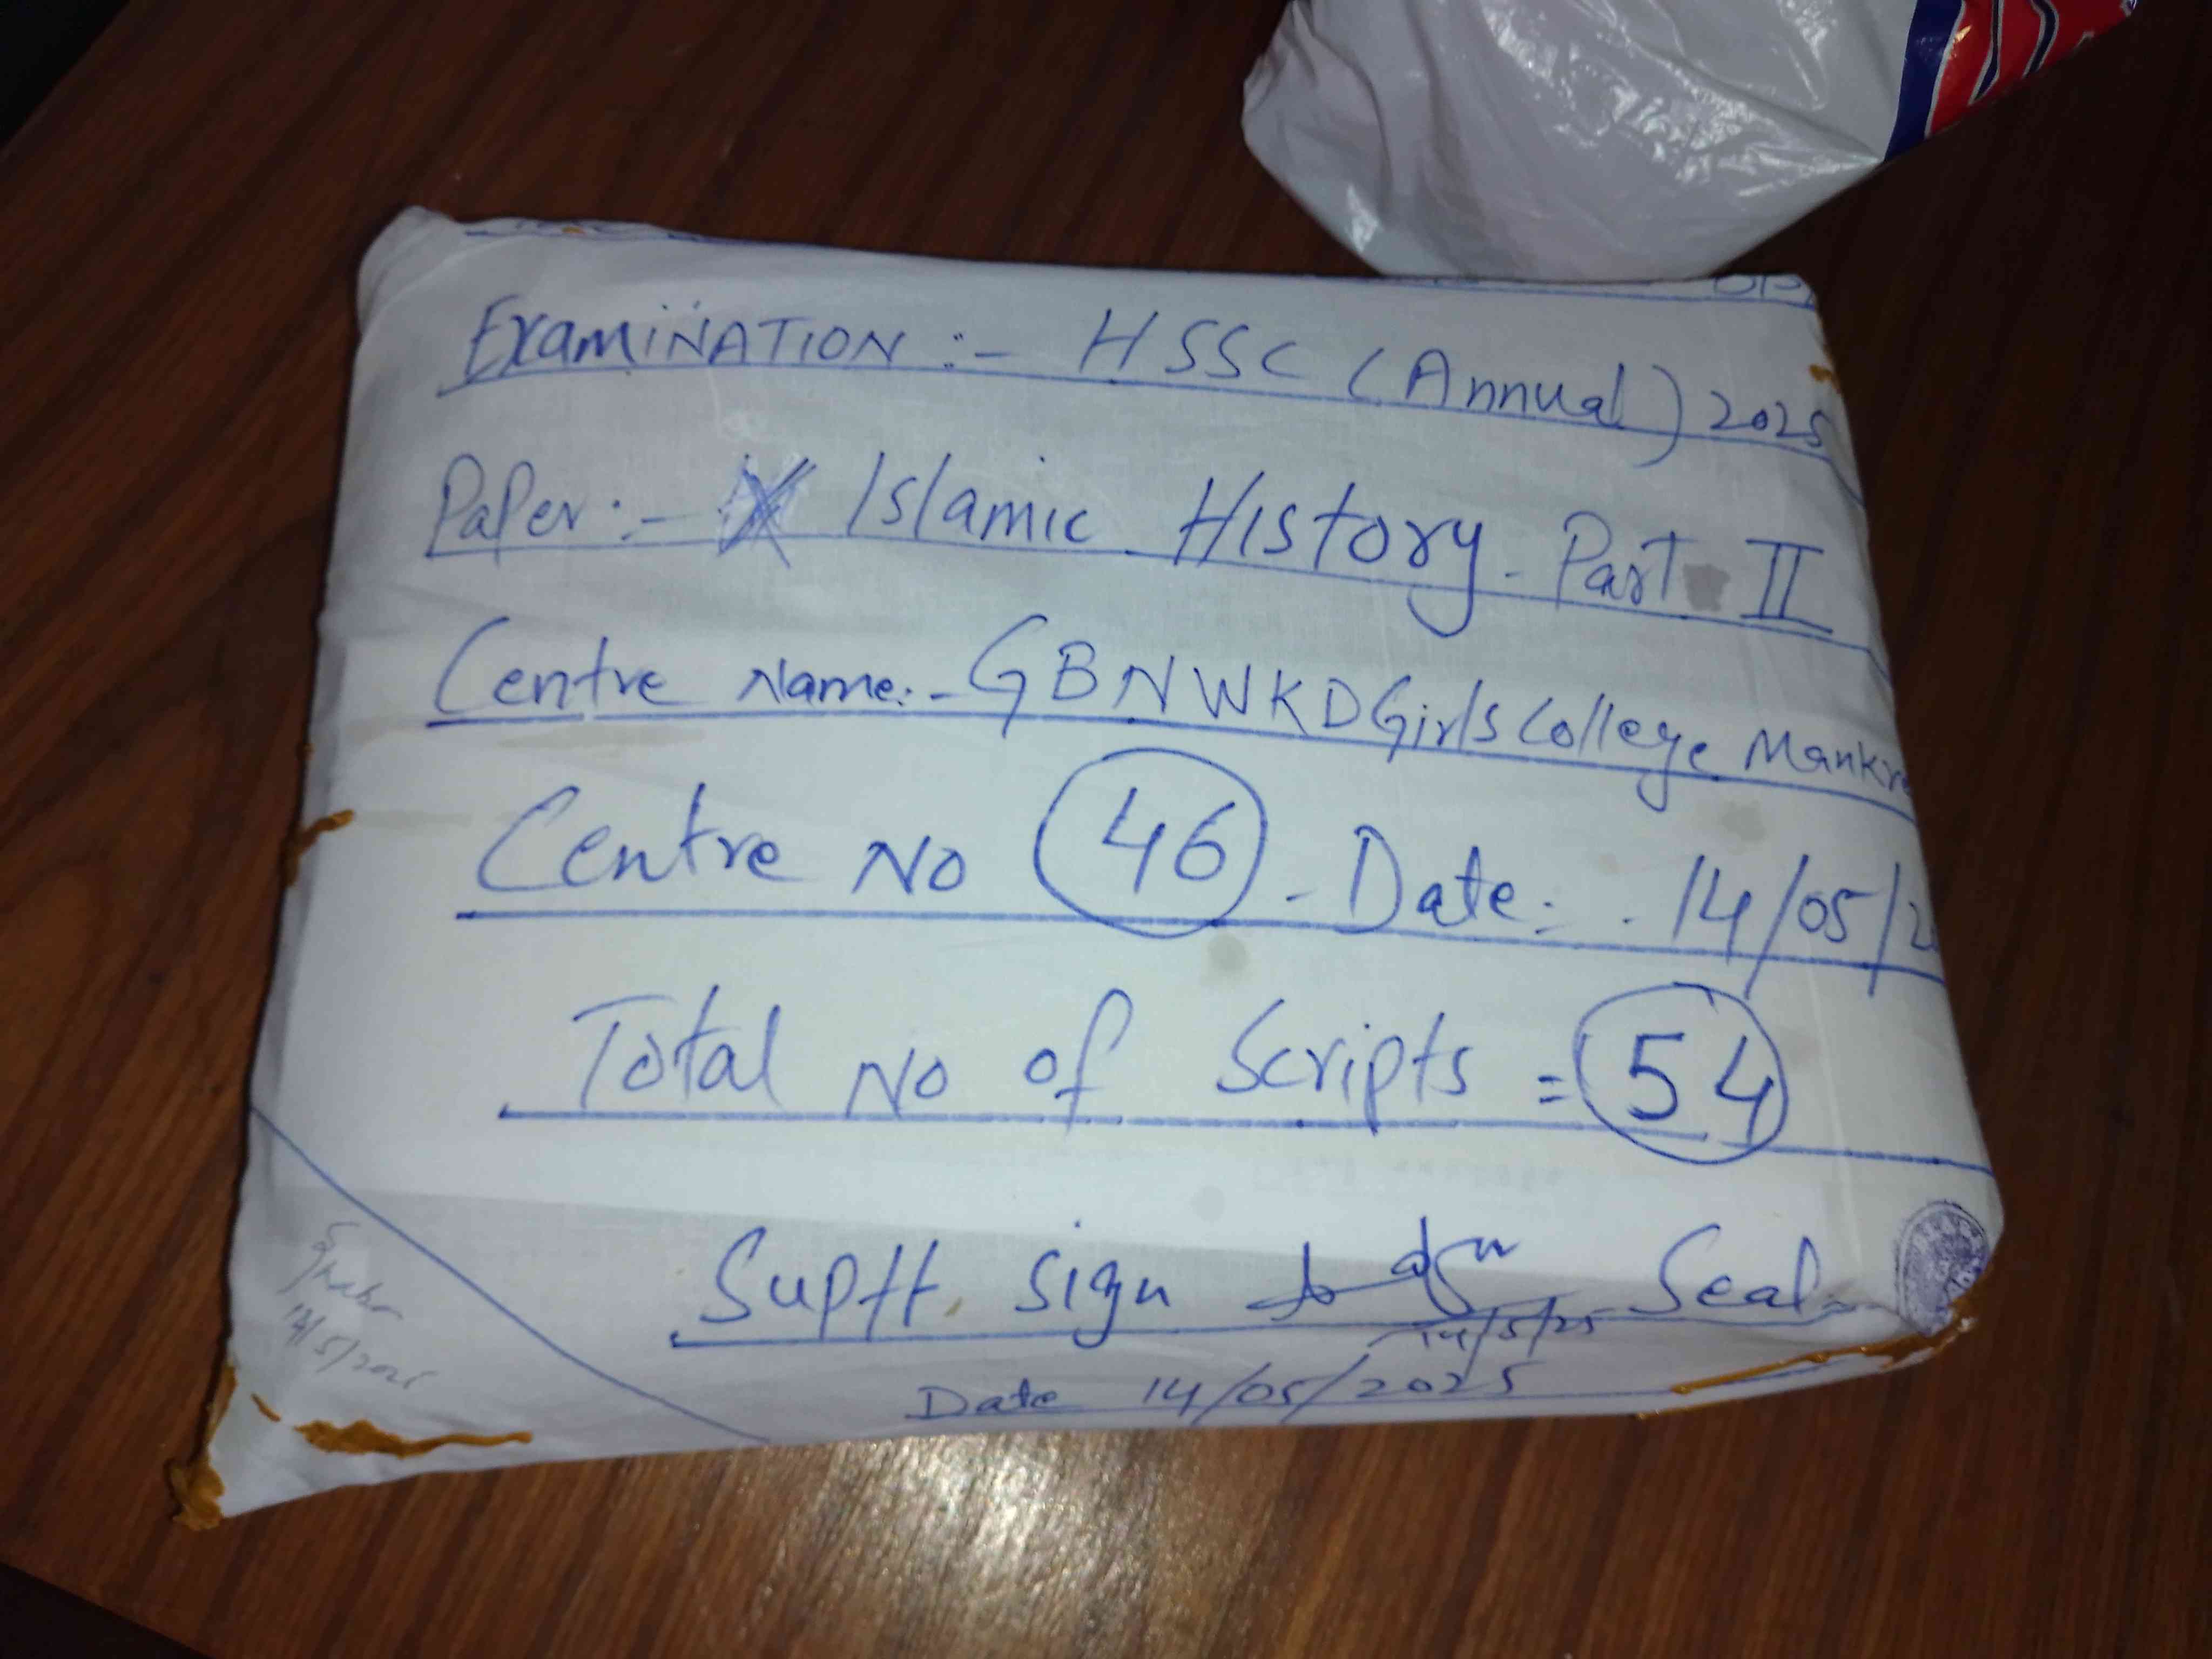 EXAMINATION :- HSSC (Annual) 2025
Paper :- Islamic History - Part II
Centre Name :- GBNWKD Girls College
Centre No 46 - Date :- 14/05/
Total No of Scripts = 54
Suptt. Sign Seal
14/5/25
Date 14/05/2025